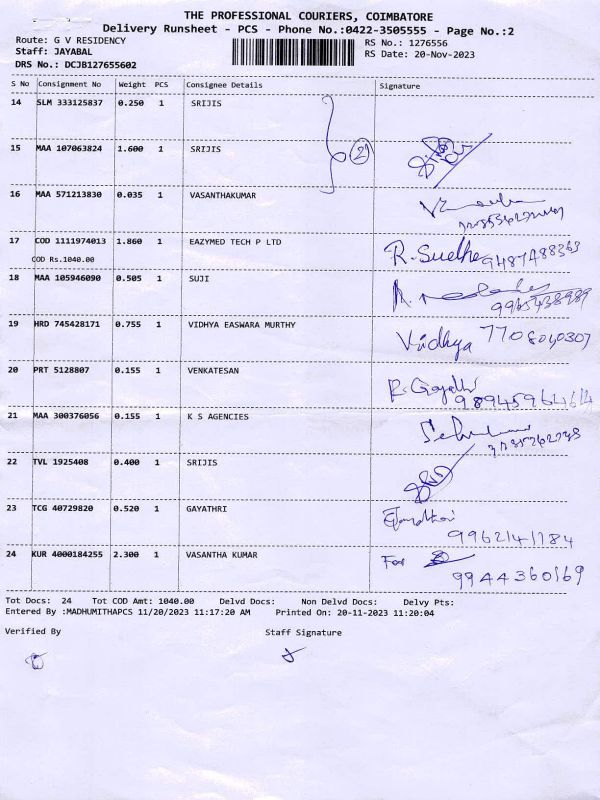 THE PROFESSIONAL COURIERS, COIMBATORE
Delivery Runsheet - PCS - Phone No.:0422-3505555 - Page No.:2
Route: G V RESIDENCY
RS No.: 1276556
Staff: JAYABAL
RS Date: 20-Nov-2023
DRS No.: DCJB127655602
S No Consignment No Weight PCS Consignee Details Signature
14 SLM 333125837 0.250 1 SRIJIS
15 MAA 107063824 1.600 1 SRIJIS
2
16 MAA 571213830 0.035 1 VASANTHAKUMAR
17 COD 1111974013 1.860 1 EAZYMED TECH P LTD R.Sudha 9487488363
COD Rs.1040.00
18 MAA 105946090 0.505 1 SUJI
9965438989
19 HRD 745428171 0.755 1 VIDHYA EASWARA MURTHY Vidhya 7708040307
20 PRT 5128807 0.155 1 VENKATESAN
9894596464
21 MAA 300376056 0.155 1 K S AGENCIES
22 TVL 1925408 0.400 1 SRIJIS
23 TCG 40729820 0.520 1 GAYATHRI
9962141784
24 KUR 4000184255 2.300 1 VASANTHA KUMAR For
9944360169
Tot Docs: 24 Tot COD Amt: 1040.00 Delvd Docs: Non Delvd Docs: Delvy Pts:
Entered By :MADHUMITHAPCS 11/20/2023 11:17:20 AM Printed On: 20-11-2023 11:20:04
Verified By Staff Signature